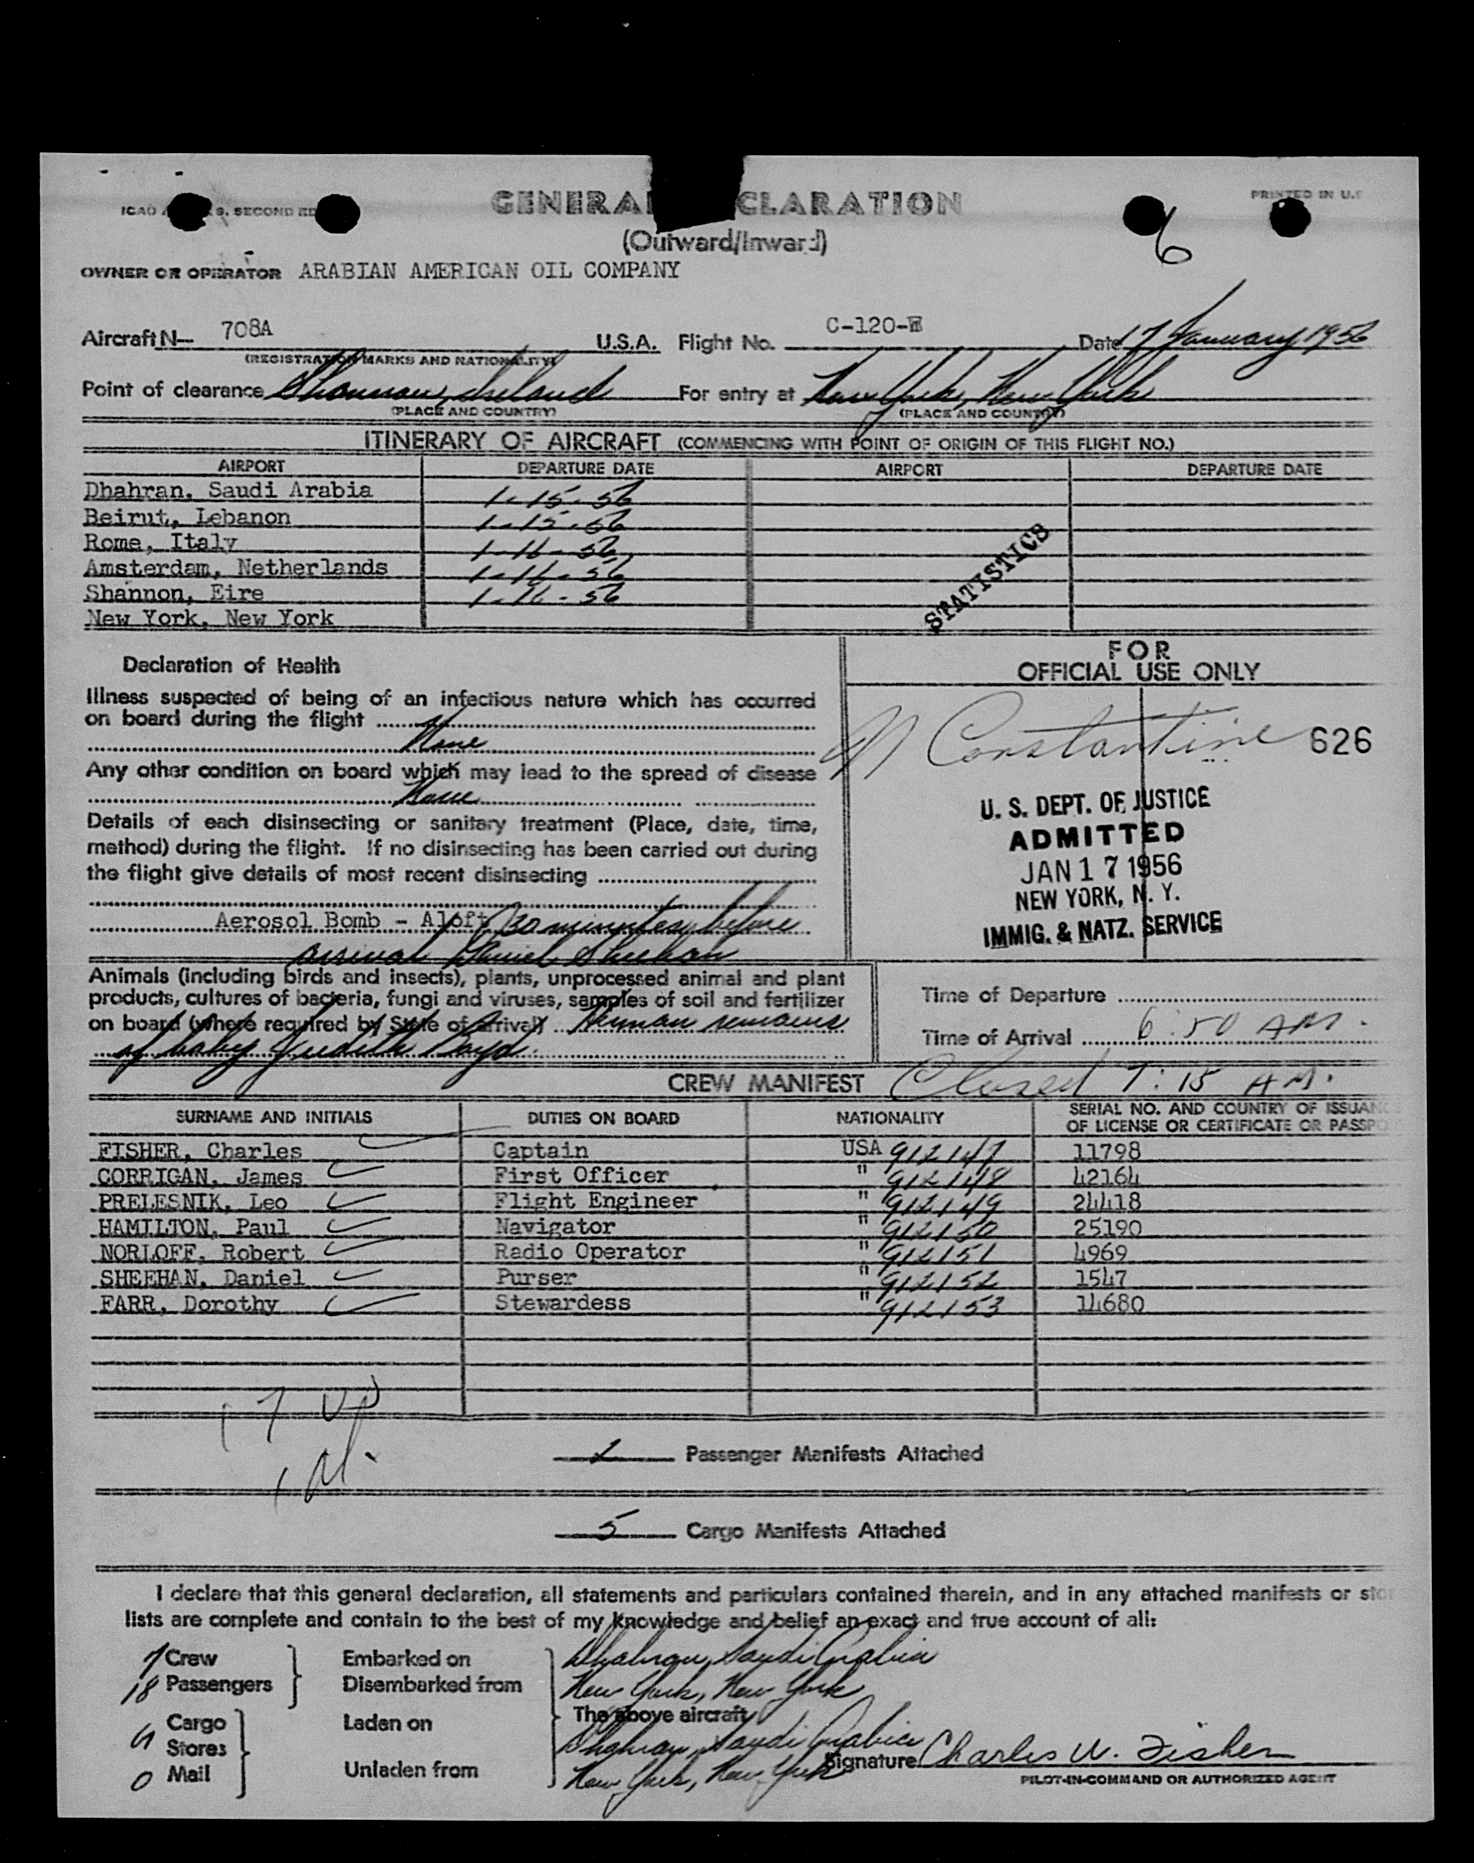 GENERAL DECLARATION
PRINTED IN U.S
SECOND ED
6
(Outward/Inward)
OWNER OR OPERATOR ARABIAN AMERICAN OIL COMPANY
Aircraft N— 708A U.S.A. Flight No. C-120- Date 17 January 1956
(REGISTRATION MARKS AND NATIONALITY)
Point of clearance Shannon, Ireland For entry at New York, New York
(PLACE AND COUNTRY) (PLACE AND COUNTRY)
ITINERARY OF AIRCRAFT (COMMENCING WITH POINT OF ORIGIN OF THIS FLIGHT NO.)
AIRPORT DEPARTURE DATE AIRPORT DEPARTURE DATE
Dhahran, Saudi Arabia 1-15-56
Beirut, Lebanon 1-15-56
Rome, Italy 1-16-56
Amsterdam, Netherlands 1-16-56
Shannon, Eire 1-16-56
New York, New York
STATISTICS
Declaration of Health
Illness suspected of being of an infectious nature which has occurred
on board during the flight
None
Any other condition on board which may lead to the spread of disease
None
Details of each disinsecting or sanitary treatment (Place, date, time,
method) during the flight. If no disinsecting has been carried out during
the flight give details of most recent disinsecting
Aerosol Bomb - Aloft 30 minutes before
arrival Daniel Sheehan
FOR
OFFICIAL USE ONLY
Constantine 626
U. S. DEPT. OF JUSTICE
ADMITTED
JAN 17 1956
NEW YORK, N. Y.
IMMIG. & NATZ. SERVICE
Animals (including birds and insects), plants, unprocessed animal and plant
products, cultures of bacteria, fungi and viruses, samples of soil and fertilizer
on board (where required by State of arrival) Human remains
of baby Judith Boyd.
Time of Departure
Time of Arrival 6:50 AM.
CREW MANIFEST Closed 7:15 AM.
SURNAME AND INITIALS DUTIES ON BOARD NATIONALITY SERIAL NO. AND COUNTRY OF ISSUANC
OF LICENSE OR CERTIFICATE OR PASSPO
FISHER, Charles Captain USA 912147 11798
CORRIGAN, James First Officer " 912148 42164
PRELESNIK, Leo Flight Engineer " 912149 24418
HAMILTON, Paul Navigator " 912150 25190
NORLOFF, Robert Radio Operator " 912151 4969
SHEEHAN, Daniel Purser " 912152 1547
FARR, Dorothy Stewardess " 912153 14680
1 Passenger Manifests Attached
5 Cargo Manifests Attached
I declare that this general declaration, all statements and particulars contained therein, and in any attached manifests or sto
lists are complete and contain to the best of my knowledge and belief an exact and true account of all:
7 Crew Embarked on Dhahran, Saudi Arabia
18 Passengers Disembarked from New York, New York
The above aircraft
Cargo Laden on Dhahran, Saudi Arabia
Stores
0 Mail Unladen from New York, New York
Signature Charles W. Fisher
PILOT-IN-COMMAND OR AUTHORIZED AGENT